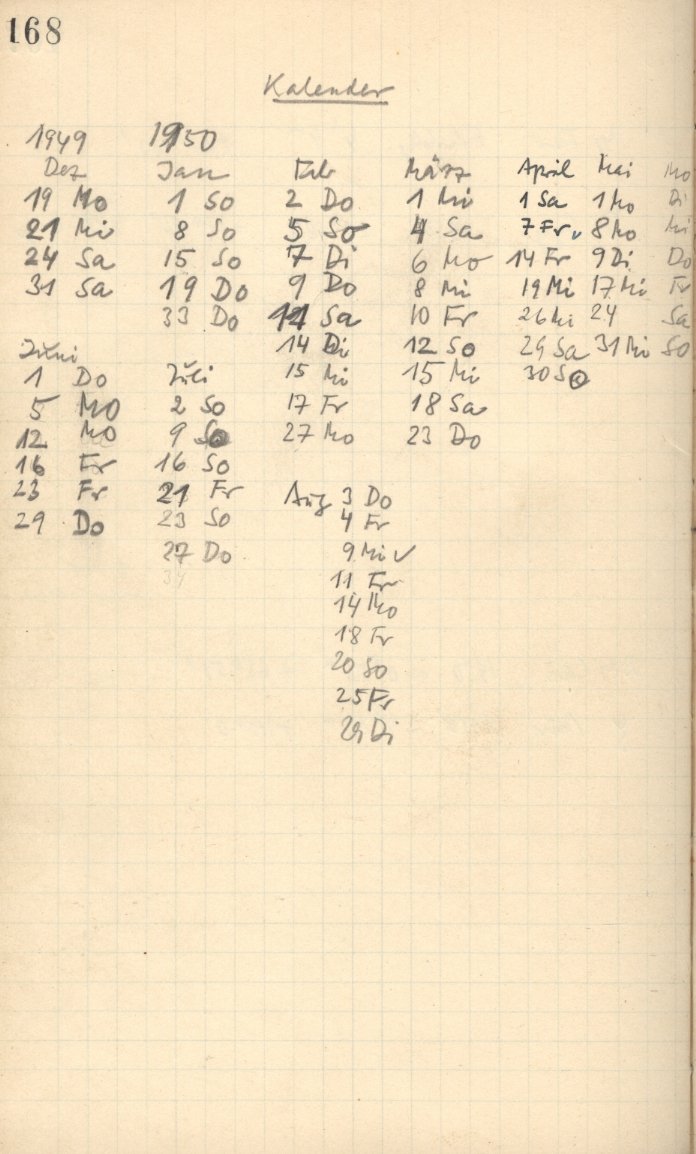 168
Kalender
1949 1950
Dez Jan Feb März April Mai Mo
19 Mo 1 So 2 Do 1 Mi 1 Sa 1 Mo Di
21 Mi 8 So 5 So 4 Sa 7 Fr 8 Mo Mi
24 Sa 15 So 7 Di 6 Mo 14 Fr 9 Di Do
31 Sa 19 Do 9 Do 8 Mi 19 Mi 17 Mi Fr
33 Do Sa 10 Fr 26 Mi 24 Sa
14 Di 12 So 29 Sa 31 Mi So
Jŭni
1 Do Jŭli 15 Mi 15 Mi 30 So
5 Mo 2 So 17 Fr 18 Sa
12 Mo 9 So 27 Mo 23 Do
16 Fr 16 So
23 Fr 21 Fr Aug 3 Do
29 Do 23 So 4 Fr
27 Do 9 Mi ✓
11 Fr
14 Mo
18 Fr
20 So
25 Fr
29 Di